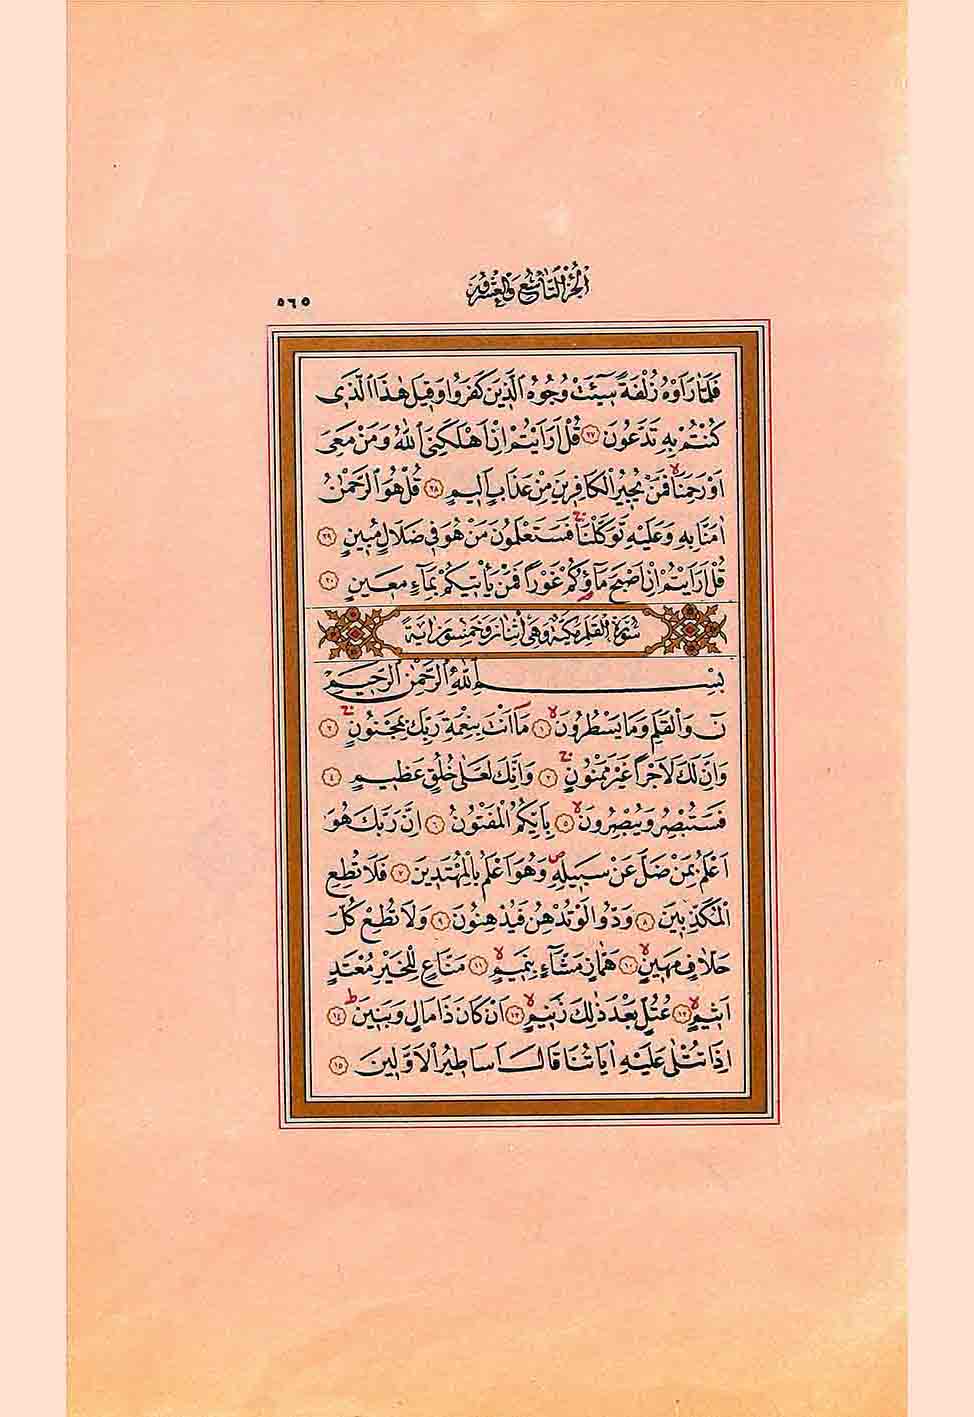 الجزء التاسع والعشرون
٥٦٥
فَلَمَّا رَاَوْهُ زُلْفَةً سٖٓيـَٔتْ وُجُوهُ الَّذٖينَ كَفَرُوا وَقٖيلَ هٰذَا الَّذٖى
كُنْتُمْ بِهٖ تَدَّعُونَ ﴿٢٧﴾ قُلْ اَرَاَيْتُمْ اِنْ اَهْلَكَنِىَ اللّٰهُ وَمَنْ مَعِىَ
اَوْ رَحِمَنَاۙ فَمَنْ يُجٖيرُ الْكَافِرٖينَ مِنْ عَذَابٍ اَلٖيمٍ ﴿٢٨﴾ قُلْ هُوَ الرَّحْمٰنُ
اٰمَنَّا بِهٖ وَعَلَيْهِ تَوَكَّلْنَاۚ فَسَتَعْلَمُونَ مَنْ هُوَ فٖى ضَلَالٍ مُبٖينٍ ﴿٢٩﴾
قُلْ اَرَاَيْتُمْ اِنْ اَصْبَحَ مَٓاؤُ۬كُمْ غَوْرًا فَمَنْ يَأْتٖيكُمْ بِمَٓاءٍ مَعٖينٍ ﴿٣٠﴾
سورة القلم مكية وهي اثنان وخمسون اية
بِسْمِ اللّٰهِ الرَّحْمٰنِ الرَّحٖيمِ
نٓ وَالْقَلَمِ وَمَا يَسْطُرُونَۙ ﴿١﴾ مَٓا اَنْتَ بِنِعْمَةِ رَبِّكَ بِمَجْنُونٍۚ ﴿٢﴾
وَاِنَّ لَكَ لَاَجْرًا غَيْرَ مَمْنُونٍۚ ﴿٣﴾ وَاِنَّكَ لَعَلٰى خُلُقٍ عَظٖيمٍ ﴿٤﴾
فَسَتُبْصِرُ وَيُبْصِرُونَۙ ﴿٥﴾ بِاَيِّكُمُ الْمَفْتُونُ ﴿٦﴾ اِنَّ رَبَّكَ هُوَ
اَعْلَمُ بِمَنْ ضَلَّ عَنْ سَبٖيلِهٖࣕ وَهُوَ اَعْلَمُ بِالْمُهْتَدٖينَ ﴿٧﴾ فَلَا تُطِعِ
الْمُكَذِّبٖينَ ﴿٨﴾ وَدُّوا لَوْ تُدْهِنُ فَيُدْهِنُونَ ﴿٩﴾ وَلَا تُطِعْ كُلَّ
حَلَّافٍ مَهٖينٍۙ ﴿١٠﴾ هَمَّازٍ مَشَّٓاءٍ بِنَمٖيمٍۙ ﴿١١﴾ مَنَّاعٍ لِلْخَيْرِ مُعْتَدٍ
اَثٖيمٍۙ ﴿١٢﴾ عُتُلٍّ بَعْدَ ذٰلِكَ زَنٖيمٍۙ ﴿١٣﴾ اَنْ كَانَ ذَا مَالٍ وَبَنٖينَؕ ﴿١٤﴾
اِذَا تُتْلٰى عَلَيْهِ اٰيَاتُنَا قَالَ اَسَاطٖيرُ الْاَوَّلٖينَ ﴿١٥﴾